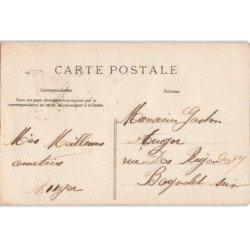 CARTE POSTALE
Correspondance
Adresse
Tous les pays étrangers n'acceptent pas la
correspondance au recto, se renseigner à la Poste.
Mes Meilleures
amitiés
Monsieur Gaston
Auger
rue des
Bagnolet Seine